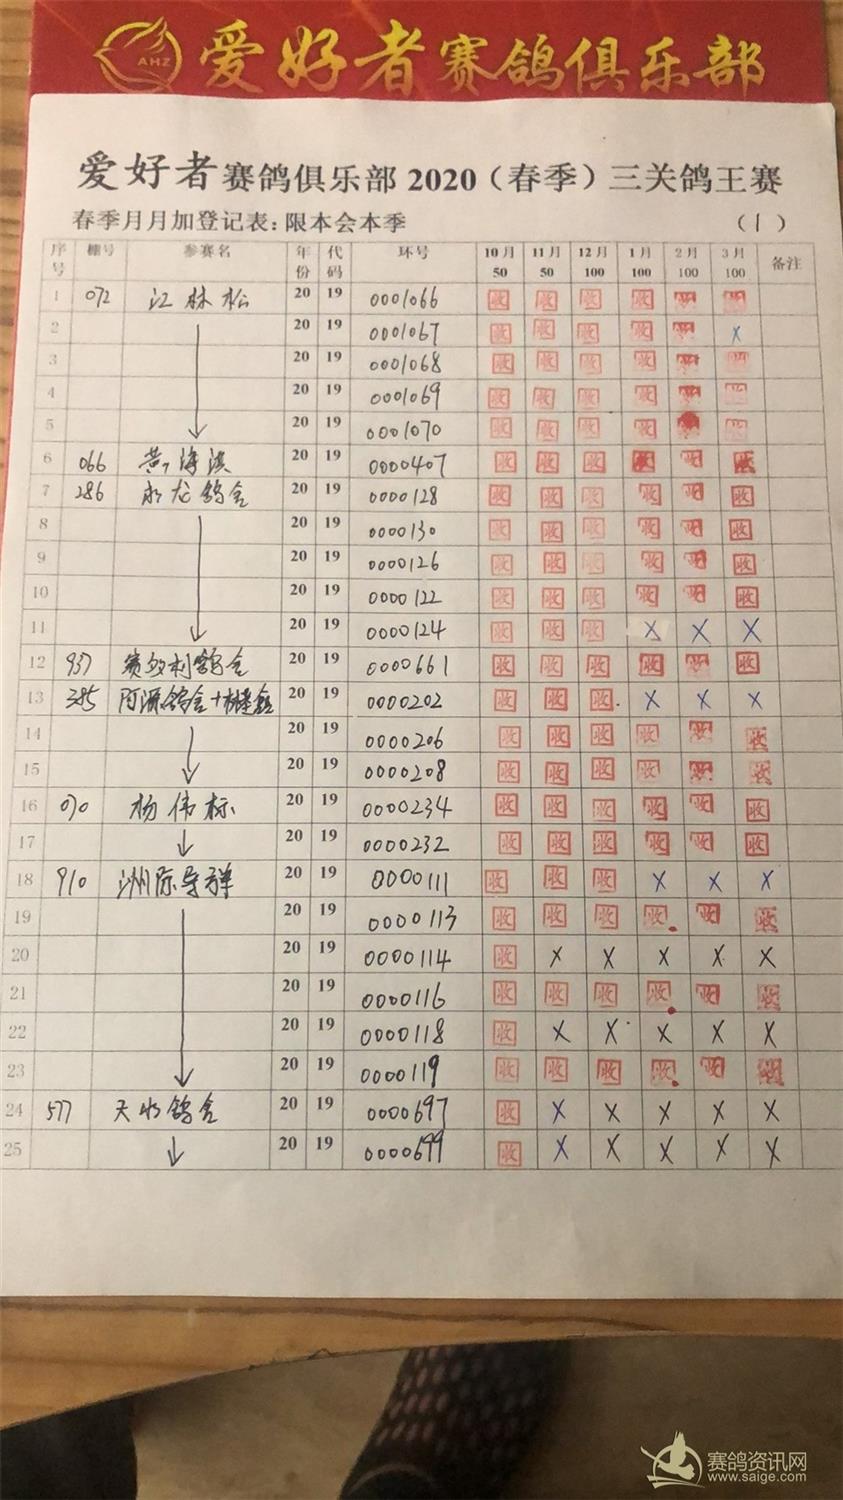 AHZ 爱好者赛鸽俱乐部
爱好者赛鸽俱乐部2020（春季）三关鸽王赛
春季月月加登记表：限本会本季 （1）
序号 棚号 参赛名 年份 代码 环号 10月50 11月50 12月100 1月100 2月100 3月100 备注
1 072 江林松 20 19 0001066 收 收 收 收 收 收
2 20 19 0001067 收 收 收 收 收 X
3 20 19 0001068 收 收 收 收 收 收
4 20 19 0001069 收 收 收 收 收 收
5 20 19 0001070 收 收 收 收 收 收
6 066 黄海滨 20 19 0000407 收 收 收 收 收 收
7 286 永龙鸽舍 20 19 0000128 收 收 收 收 收 收
8 20 19 0000130 收 收 收 收 收 收
9 20 19 0000126 收 收 收 收 收 收
10 20 19 0000122 收 收 收 收 收 收
11 20 19 0000124 收 收 收 X X X
12 937 胜利鸽舍 20 19 0000661 收 收 收 收 收 收
13 385 阿源鸽舍+ 20 19 0000202 收 收 收 X X X
14 20 19 0000206 收 收 收 收 收 收
15 20 19 0000208 收 收 收 收 收 收
16 070 杨伟标 20 19 0000234 收 收 收 收 收 收
17 20 19 0000232 收 收 收 收 收 收
18 910 洲际导群 20 19 0000111 收 收 收 X X X
19 20 19 0000113 收 收 收 收 收 收
20 20 19 0000114 收 X X X X X
21 20 19 0000116 收 收 收 收 收 收
22 20 19 0000118 收 X X X X X
23 20 19 0000119 收 收 收 收 收 收
24 577 天水鸽舍 20 19 0000697 收 X X X X X
25 20 19 0000699 收 X X X X X
赛鸽资讯网
www.saige.com